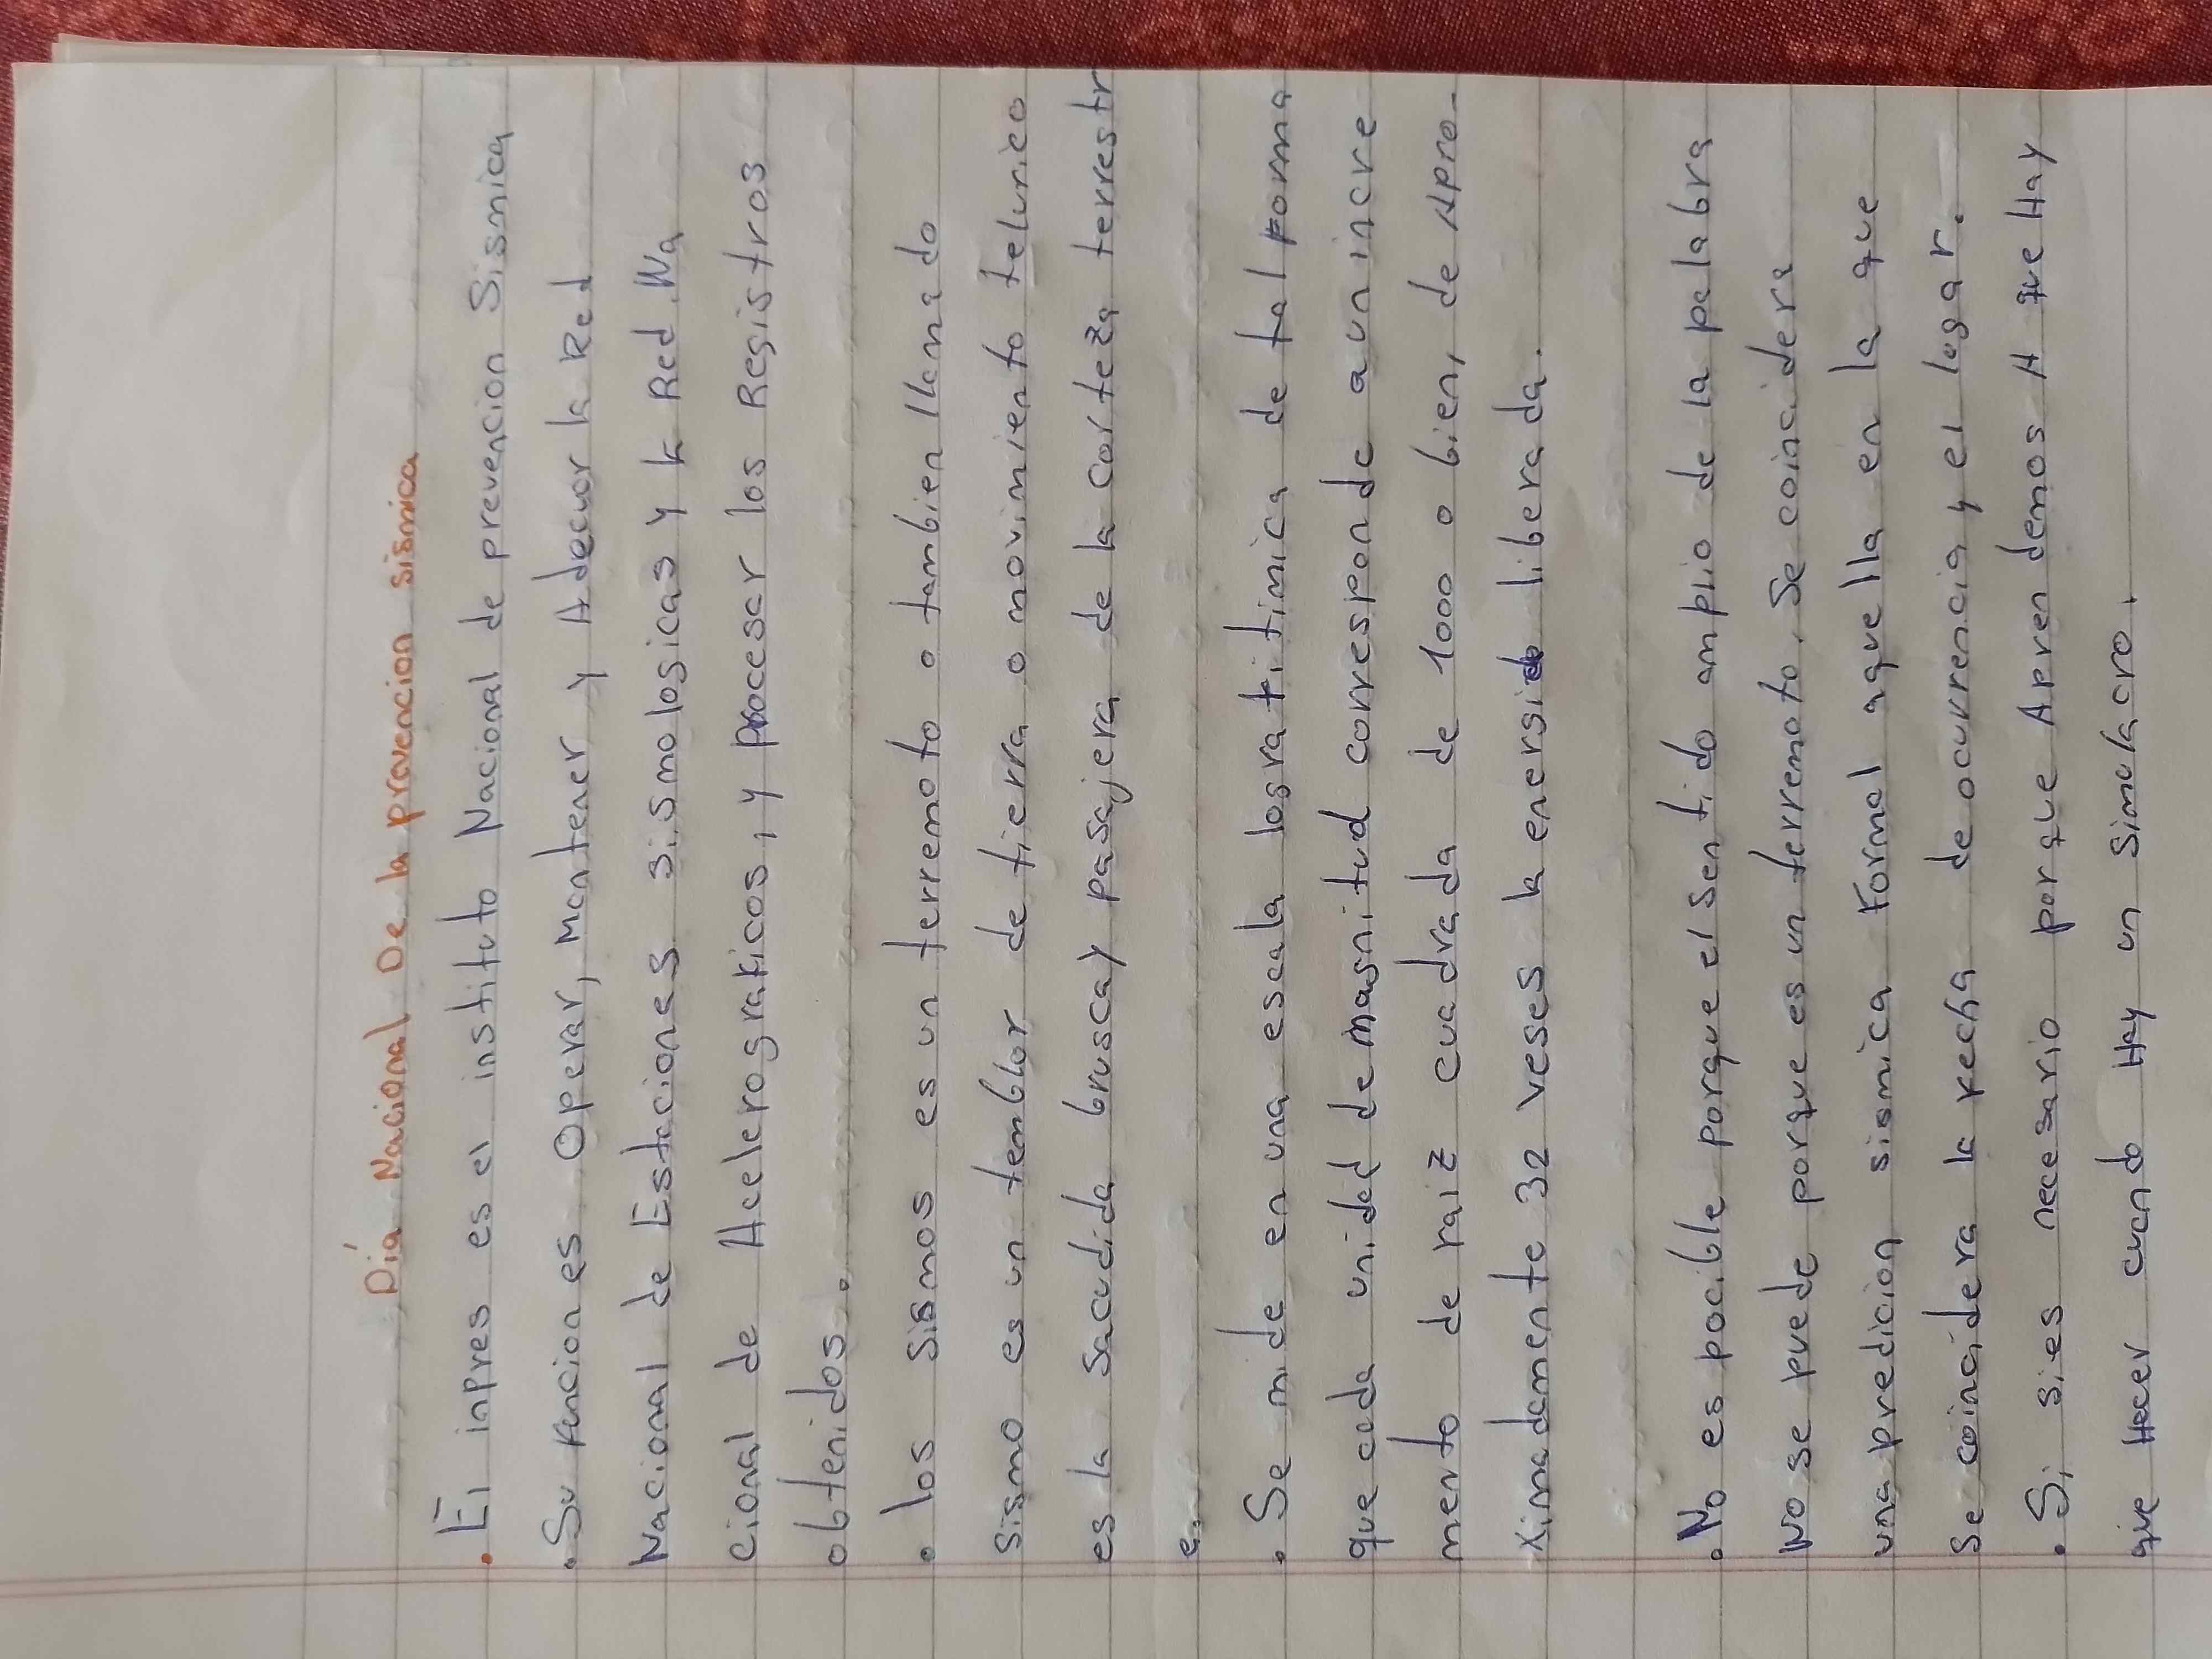 Día Nacional De la prevencion sismica
. El inpres es el instituto Nacional de prevencion Sismica
. Su funcion es Operar, Mantener y Adecuar la Red
Nacional de Estaciones sismologicas y la Red Na
cional de Acelerograficos, y procesar los Registros
obtenidos.
. los sismos es un terremoto o tambien llamado
sismo es un temblor de tierra o movimiento telurico
es la sacudida brusca y pasajera de la corteza terrestr
e.
. Se mide en una escala logratitimica de tal forma
que cada unidad de magnitud corresponde a un incre
mento de raiz cuadrada de 1000 o bien, de Apro-
ximadamente 32 veses la energido liberada.
. No es pocible porque el sentido amplio de la palabra
No se puede porque es un terremoto. Se coincidera
una predicion sismica Formal aquella en la que
se coincidera la fecha de ocurrencia y el logar.
. Si, si es necesario porque Aprendemos A que Hay
que Hacer cuando Hay un simulacro.